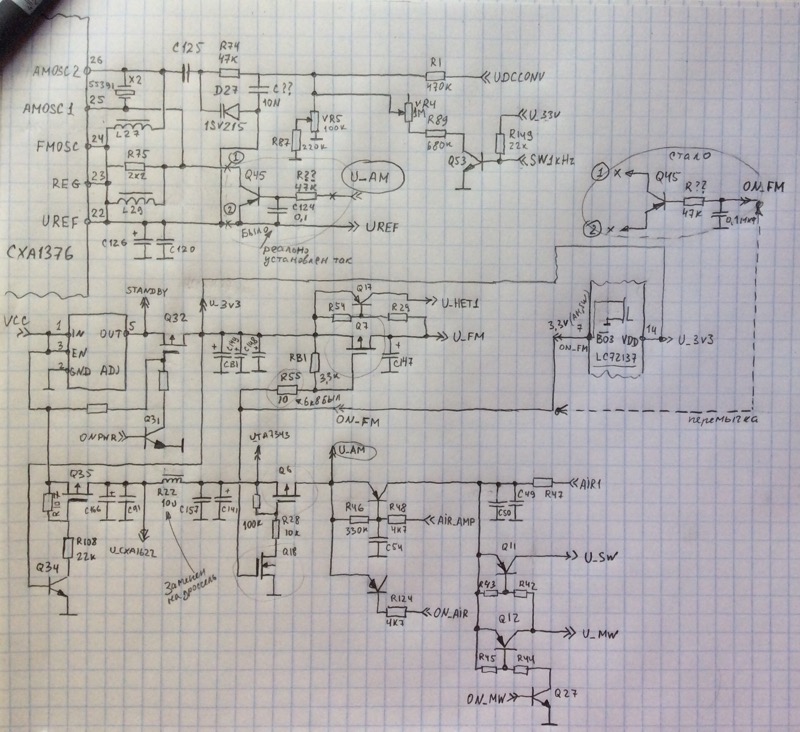 26
AMOSC 2
55391
X2
25
AMOSC 1
24
FMOSC
L27
R75
2K2
23
REG
L29
22
UREF
C126
C120
CXA1376
C125
R74
47K
D27
1SV215
C??
10N
VR5
100K
R87
220K
R1
470K
UDCCONV
VR4
1M
R89
680K
Q53
U_33V
R149
22K
SW1KHZ
1
Q45
2
R??
47K
U_AM
C124
0,1
UREF
БЫЛО
реально
установлен так
СТАЛО
1
Q45
2
R??
47K
ON_FM
0,1МКФ
STANDBY
VCC
1
IN
OUT
5
3
EN
2
GND
ADJ
Q32
U_3V3
C81
Q31
ONPWR
Q17
R54
R29
Q7
U_HET1
U_FM
C147
RB1
3,3K
R55
10
6K8 БЫЛ
ON_FM
3,3V
7
ON_FM
B03
VDD
14
LC72137
U_3V3
перемычка
Q35
C166
C91
R22
10U
C157
C141
UTA7343
Q6
100K
R28
10K
Q18
R108
22K
Q34
U_CXA1622
Заменен
на дроссель
U_AM
R46
330K
R48
4K7
AIR_AMP
C54
R124
4K7
ON_AIR
C50
C49
R47
AIR1
Q11
U_SW
R43
R42
Q12
U_MW
R45
R44
ON_MW
Q27